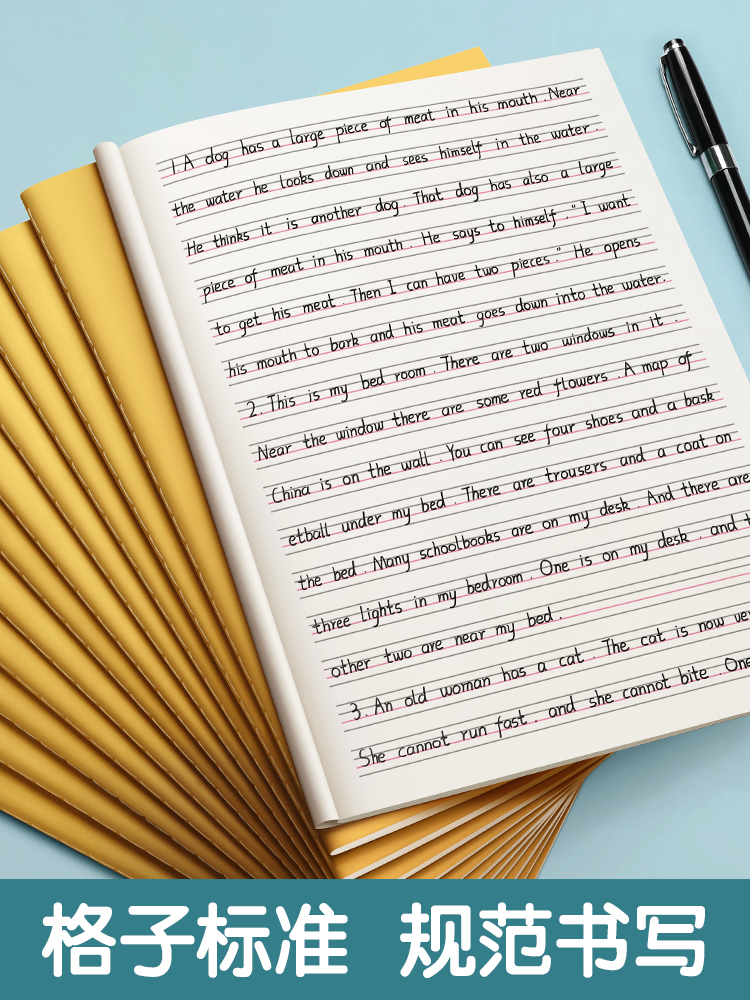 1. A dog has a large piece of meat in his mouth . Near
the water he looks down and sees himself in the water .
He thinks it is another dog . That dog has also a large
piece of meat in his mouth . He says to himself . " I want
to get his meat . Then I can have two pieces ." He opens
his mouth to bark and his meat goes down into the water.
2. This is my bed room . There are two windows in it .
Near the window there are some red flowers . A map of
China is on the wall . You can see four shoes and a bask
etball under my bed . There are trousers and a coat on
the bed . Many schoolbooks are on my desk . And there are
three lights in my bedroom . One is on my desk . and
other two are near my bed .
3. An old woman has a cat . The cat is now
She cannot run fast . and she cannot bite . One
格子标准 规范书写